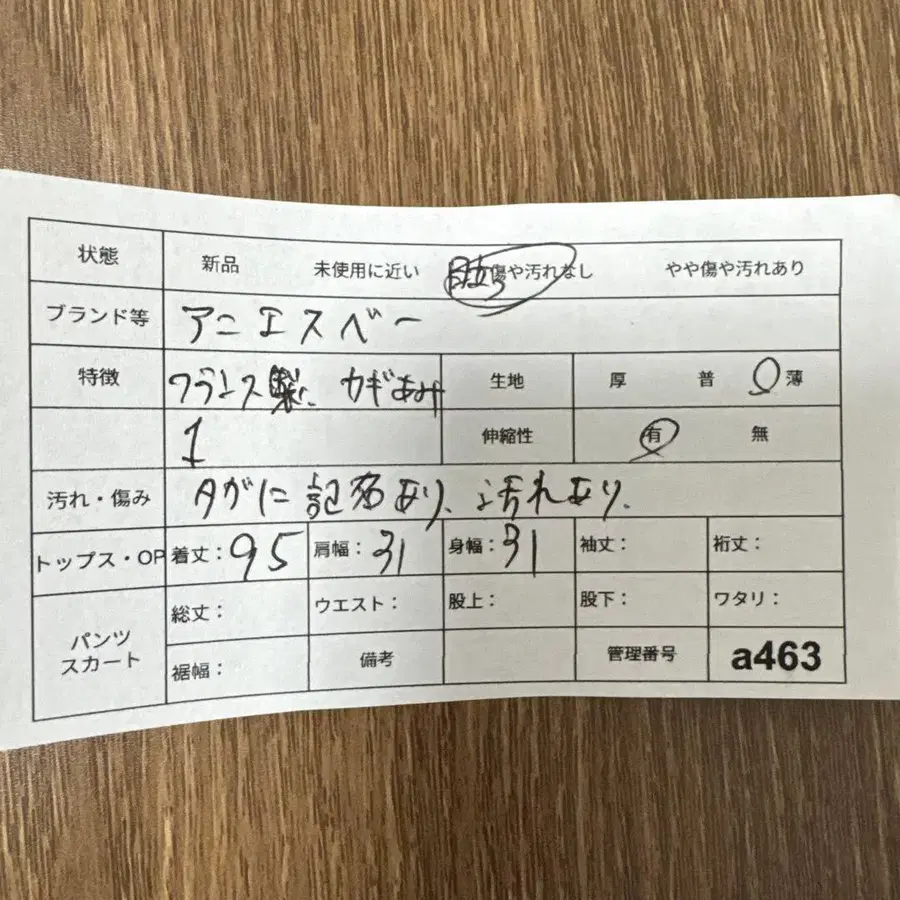 状態 新品 未使用に近い 目立つ傷や汚れなし やや傷や汚れあり
ブランド等 アニエスベー
特徴 フランス製 カギあみ 生地 厚 普 薄
1 伸縮性 有 無
汚れ・傷み タグに記名あり、汚れあり、
トップス・OP 着丈：95 肩幅：31 身幅：31 袖丈： 裄丈：
パンツ スカート 総丈： ウエスト： 股上： 股下： ワタリ：
裾幅： 備考 管理番号 a463